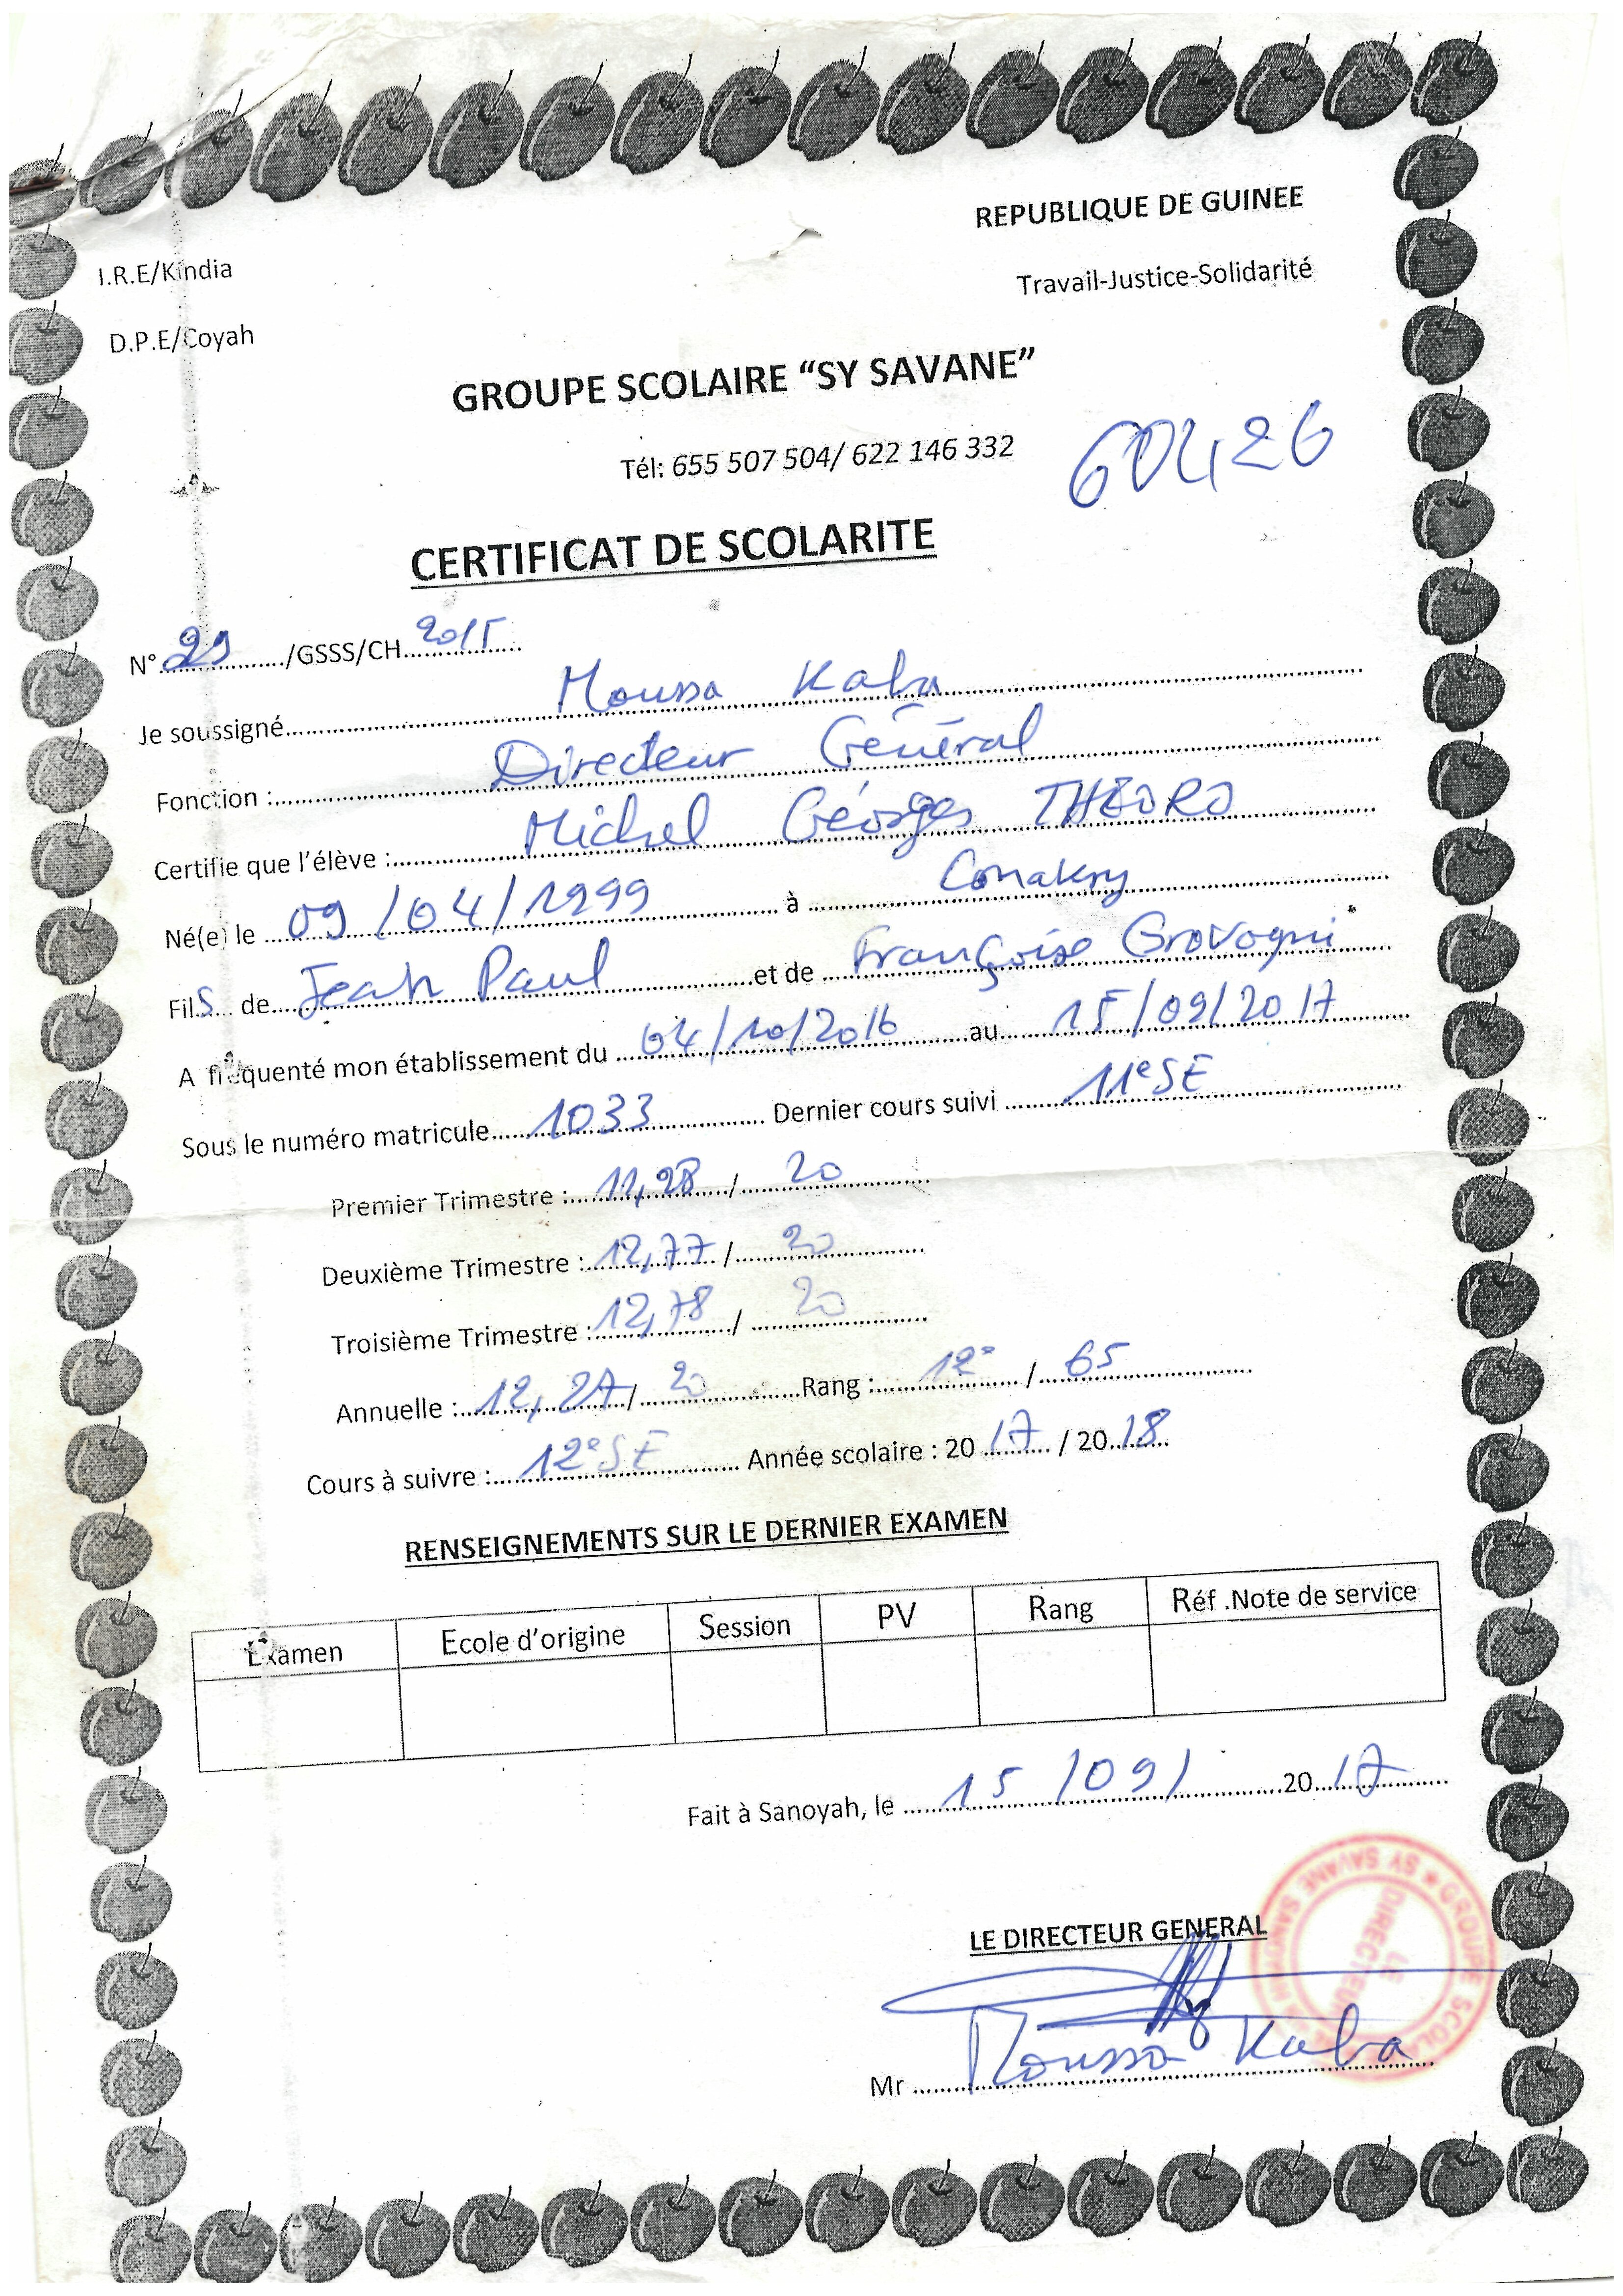 REPUBLIQUE DE GUINEE
I.R.E/Kindia
Travail-Justice-Solidarité
D.P.E/Coyah
GROUPE SCOLAIRE “SY SAVANE”
Tél: 655 507 504/ 622 146 332
60426
CERTIFICAT DE SCOLARITE
N° 29 /GSSS/CH 2015
Je soussigné Moussa Kaba
Fonction : Directeur Général
Certifie que l'élève : Michel Géorges THÉORO
Né(e) le 09/04/1999 à Conakry
Fils de Jean Paul et de Françoise Grovogui
A fréquenté mon établissement du 04/10/2016 au 15/09/2017
Sous le numéro matricule 1033 Dernier cours suivi 11e SE
Premier Trimestre : 11,28 / 20
Deuxième Trimestre : 12,77 / 20
Troisième Trimestre : 12,78 / 20
Annuelle : 12,27 / 20 Rang : 12e / 65
Cours à suivre : 12e SE Année scolaire : 2017 / 2018
RENSEIGNEMENTS SUR LE DERNIER EXAMEN
Examen Ecole d'origine Session PV Rang Réf .Note de service
Fait à Sanoyah, le 15 /09/ 2017
LE DIRECTEUR GENERAL
GROUPE SCOLAIRE ★ SY SAVANE
LE DIRECTEUR
Mr Moussa Kaba